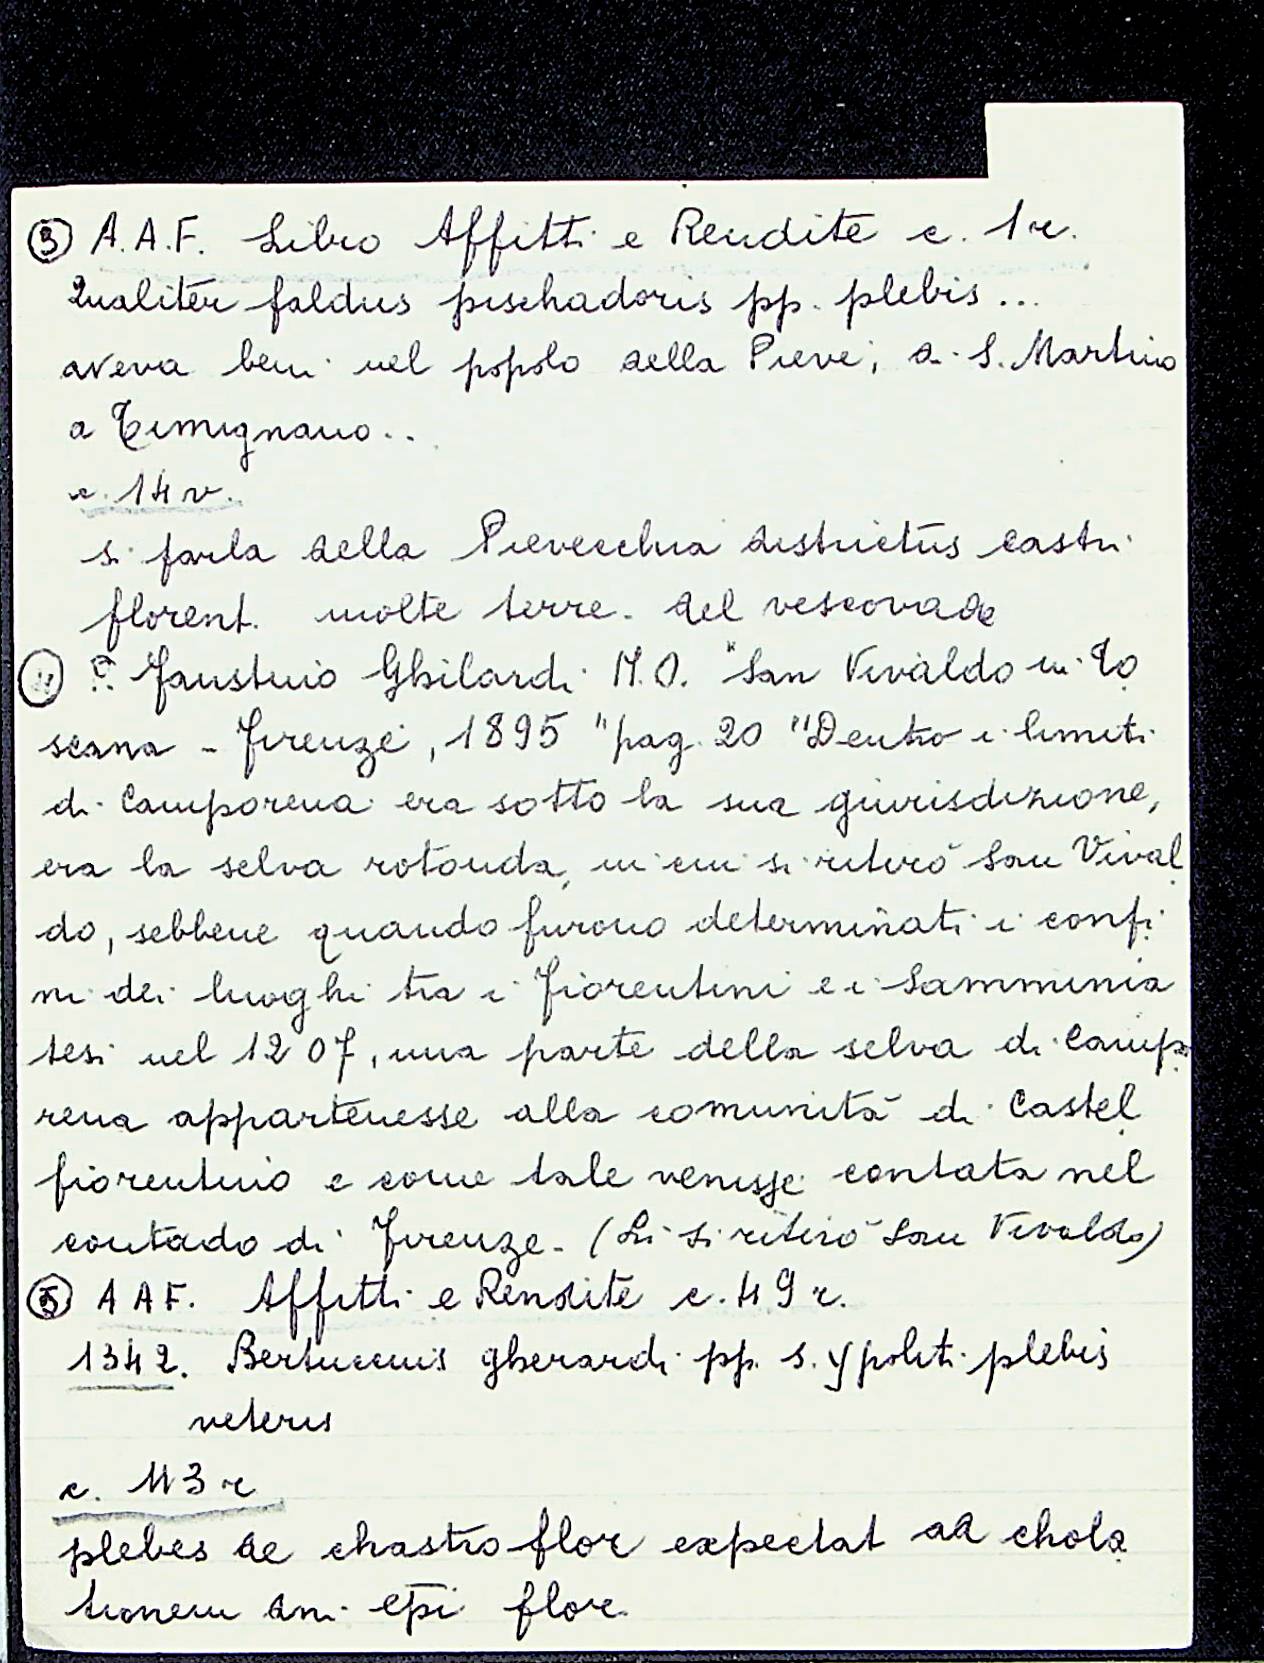 ③ A.A.F. Libro Affitti e Rendite c. 1 r.
Qualiter faldus peschadoris pp. plebis ...
aveva beni nel popolo della Pieve, di S. Martino
a Gimignano..
c. 14 v.
si parla della Pievecchia districtus castri
florent. molte terre. del vescovado
④ P. Faustino Ghilardi M.O. "San Vivaldo in To
scana - Firenze, 1895" pag. 20 "Dentro i limiti
di Camporena era sotto la sua giurisdizione,
era la selva rotonda, in cui si ritirò San Vival
do, sebbene quando furono determinati i confi
ni dei luoghi tra i Fiorentini e i Samminia
tesi nel 1207, una parte della selva di Campo
rena appartenesse alla comunità di Castel
fiorentino e come tale venisse contata nel
contado di Firenze. (Lì si ritirò San Vivaldo)
⑤ A A F. Affitti e Rendite c. 49 r.
1342. Bertuccius gherardi pp. s. ypoliti plebis
veteris
c. 113 r
plebes de chastro flor expectat ad chola
tionem dni epi flor.